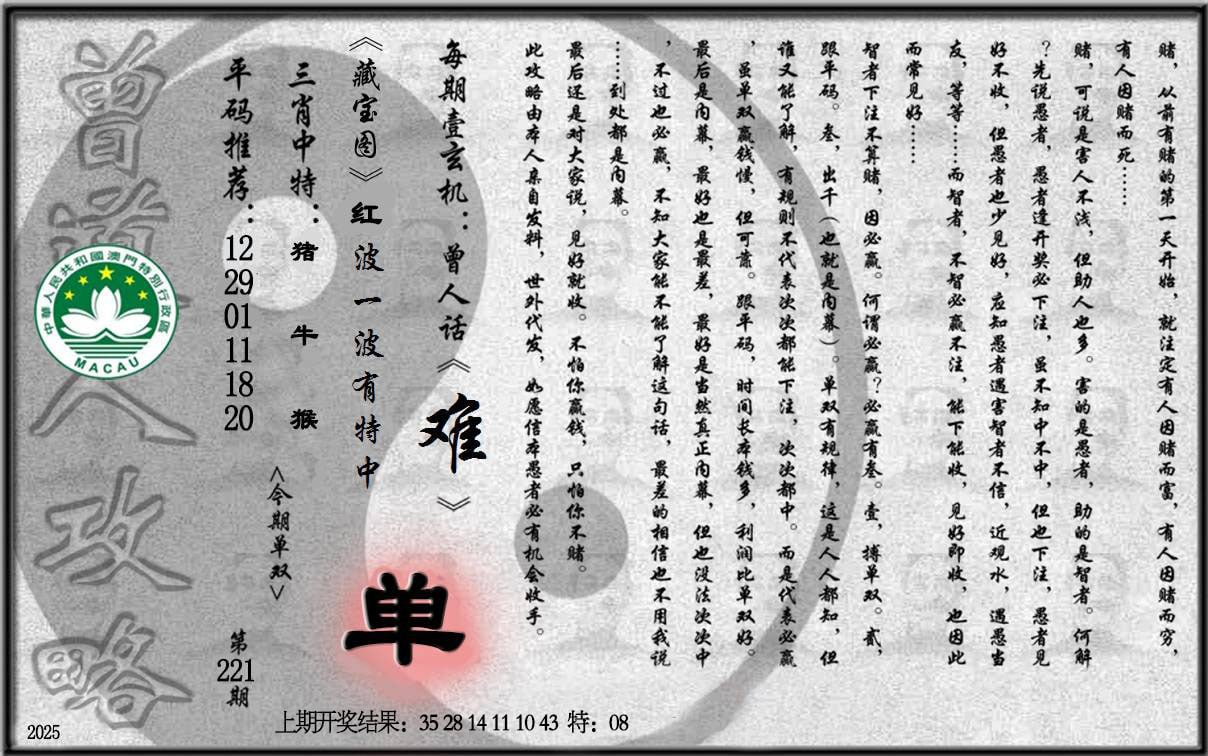 赌，从前有赌的第一天开始，就注定有人因赌而富，有人因赌而穷，
有人因赌而死……
赌，可说是害人不浅，但助人也多。害的是愚者，助的是智者。何解
？先说愚者，愚者逢开奖必下注，虽不知中不中，但也下注，愚者见
好不收，但愚者也少见好，应知愚者遇害智者不信，近观水，遇愚当
友，等等……而智者，不智必赢不注，能下能收，见好即收，也因此
而常见好……
智者下注不算赌，因必赢。何谓必赢？必赢有叁。壹，搏单双。贰，
跟平码。叁，出千（也就是内幕）。单双有规律，这是人人都知，但
谁又能了解，有规则不代表次次都能下注，次次都中。而是代表必赢
，虽单双赢钱慢，但可靠。跟平码，时间长本钱多，利润比单双好。
最后是内幕，最好也是最差，最好是当然真正内幕，但也没法次次中
，不过也必赢，不知大家能不能了解这句话，最差的相信也不用我说
……到处都是内幕。
最后还是对大家说，见好就收。不怕你赢钱，只怕你不赌。
此攻略由本人亲自发料，世外代发，如愿信本愚者必有机会收手。
每期壹玄机：曾人话《难》
《藏宝图》红波一波有特中
三肖中特：猪 牛 猴
平码推荐：12 29 01 11 18 20
<今期单双>
单
第221期
曾道人攻略
中華人民共和國澳門特別行政區
MACAU
上期开奖结果：35 28 14 11 10 43 特：08
2025